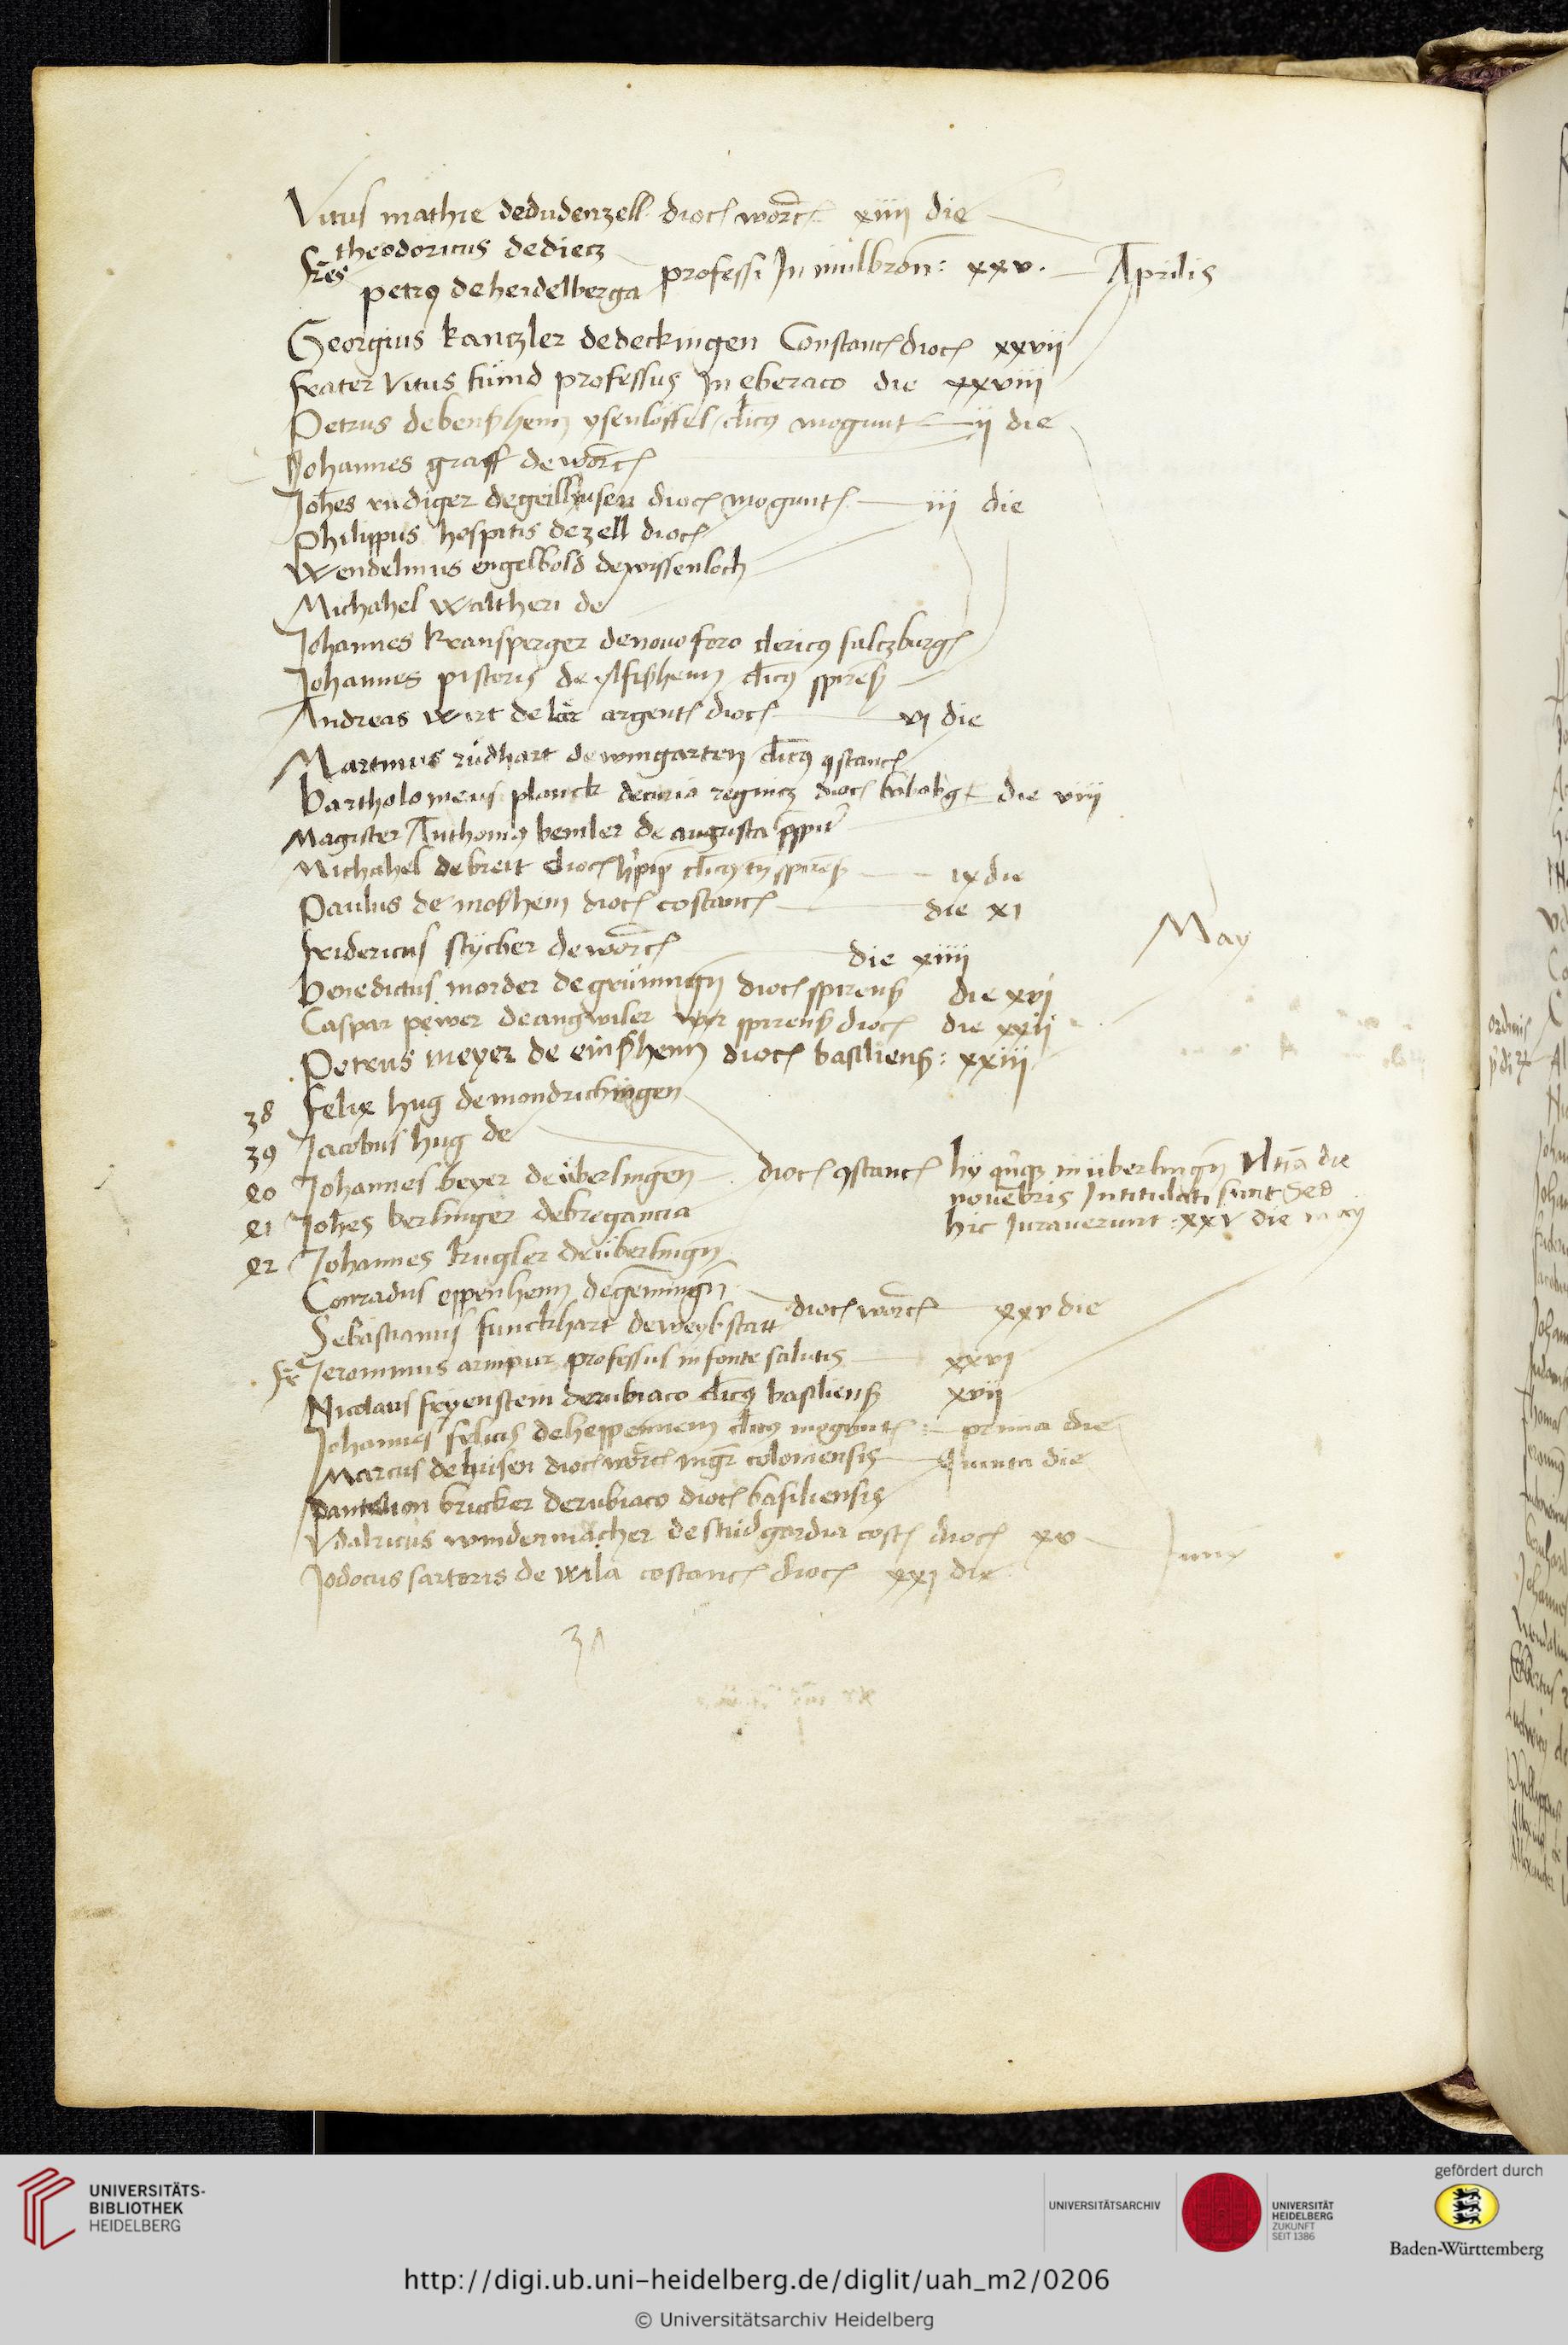 Vitus mathie de dudenzell dioc worc xiiij die
theodoricus de dietz
fres professi In mulbron: xxv. Aprilis
petrus de heidelberga
Georgius kantzler de deckingen Constanc dioc xxvij
frater Vitus fund professus In eberaco die xxviij
Petrus de bensheim ysenlöffel clicus mogunt ij die
Johannes graff de worc
Johes rudiger de geillhusen dioc mogunt iij die
Philippus hospitis de zell dioc
Wendelinus engelbold de wissenloch
Michahel waltheri de
Johannes kransperger de novo foro clericus saltzburg
Johannes pistoris de ylfisheim clicus spirens
Andreas wirt de lar argent dioc vj die
Martinus rüdhart de wingarten clicus gstanc
bartholomeus planck de curia regnitz dioc die viij
Magister Anthonius bemler de augusta
Michahel de breit dioc clicus spirens ix die
Paulus de mosheim dioc costanc die xi
fridericus stycber de worc die xiiij
May
benedictus morder de grüningn dioc spirens die xvj
Caspar pewer de angwiler spirens dioc die xxij
Petrus meyer de einsheim dioc basiliens: xxiij
38 felix hug de mondrichingen
39 Jacobus hug de
40 Johannes beyer de überlingen dioc gstanc hij quinque in überlingn Ultia die
novebris Intitulati sunt Sed
41 Johes berlinger de bregancia hic Iuraverunt: xxv die may
42 Johannes krugler de überlingn
Conradus eppenheim de gemingn
dioc worc xxv die
Sebastianus funckhart de weybstatt
fr Jeronimus armpur professus in fonte salutis xxvj
Nicolaus fryenstein de rubiaco clicus basiliens xvij
Johannes sylius de heppennem clicus mogunt prima die
Marcus de husen dioc worc mgr coloniensis Quinta die
pantelion brucker de rubiaco dioc basiliensis
Vdalricus windenmacher de studgardia cost dioc xv Junij
Jodocus sartoris de wila costanc dioc xxj die
UNIVERSITÄTS-
BIBLIOTHEK
HEIDELBERG
UNIVERSITÄTSARCHIV
UNIVERSITÄT
HEIDELBERG
ZUKUNFT
SEIT 1386
gefördert durch
Baden-Württemberg
http://digi.ub.uni-heidelberg.de/diglit/uah_m2/0206
© Universitätsarchiv Heidelberg